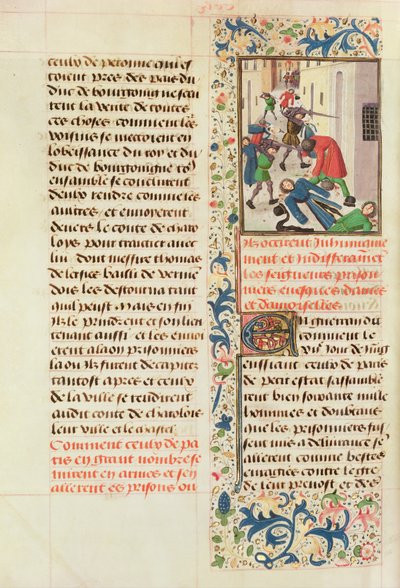 ceulx de peronne qui es
toient pres des pais du
duc de bourgoingne sceu
rent la verite de toutes
ces choses comment les
voisins se mettoient en
lobeissance du roy et du
duc de bourgoingne to9
ensamble se conclurent
deulx rendre comme les
aultres et envoyerent
devers le conte de charo
loys pour traictier avec
lui dont messire thomas
de lersies bailli de verme~
dois les destourna tant
quil peust Mais en fin
ilz le prindrent et son lieu
tenant aussi et les envoi
erent a laon prisonniers
la ou ilz furent decapitez
tantost apres et ceulx
de la ville se rendirent
audit conte de charolois
leur ville et le chastel
Comment ceulx de pa
ris en grant nombre se
mirent en armes et sen
allerent es prisons ou
ilz occirent Inhumaine
ment et Indifferament
les seigneurs prison
niers evesques dames
et damoiselles
Enguerran dit
comment le
jour de Juing
suivant ceulx de paris
de petit estat sassamble
rent bien soixante mille
hommes et doubtant
que les prisonniers fus
sent mis a delivrance se
allerent comme bestes
enragies contre le gre
de leur prevost et des